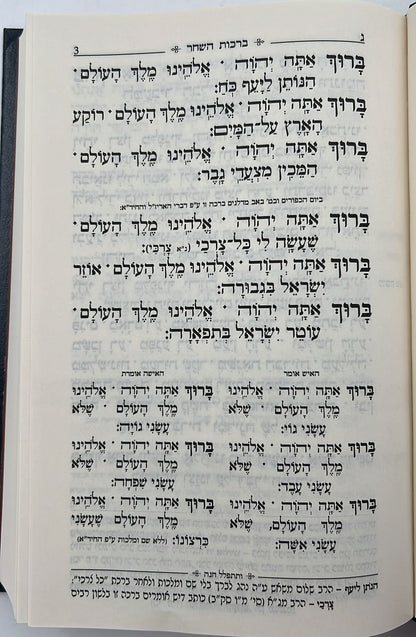 3 ברכות השחר ג
בָּרוּךְ אַתָּה יְהֹוָה · אֱלֹהֵינוּ מֶלֶךְ הָעוֹלָם ·
הַנּוֹתֵן לַיָּעֵף כֹּחַ:
בָּרוּךְ אַתָּה יְהֹוָה · אֱלֹהֵינוּ מֶלֶךְ הָעוֹלָם · רוֹקַע
הָאָרֶץ עַל־הַמָּיִם:
בָּרוּךְ אַתָּה יְהֹוָה · אֱלֹהֵינוּ מֶלֶךְ הָעוֹלָם ·
הַמֵּכִין מִצְעֲדֵי גָבֶר:
ביום הכפורים ובט׳ באב מדלגים ברכה זו ע״פ דברי האריז״ל והחיד״א:
בָּרוּךְ אַתָּה יְהֹוָה · אֱלֹהֵינוּ מֶלֶךְ הָעוֹלָם ·
שֶׁעָשָׂה לִי כָּל־צָרְכִּי (נ״א צְרָכַי):
בָּרוּךְ אַתָּה יְהֹוָה · אֱלֹהֵינוּ מֶלֶךְ הָעוֹלָם · אוֹזֵר
יִשְׂרָאֵל בִּגְבוּרָה:
בָּרוּךְ אַתָּה יְהֹוָה · אֱלֹהֵינוּ מֶלֶךְ הָעוֹלָם ·
עוֹטֵר יִשְׂרָאֵל בְּתִפְאָרָה:
האיש אומר
בָּרוּךְ אַתָּה יְהֹוָה · אֱלֹהֵינוּ
מֶלֶךְ הָעוֹלָם · שֶׁלֹּא
עָשַׂנִי גּוֹי:
בָּרוּךְ אַתָּה יְהֹוָה · אֱלֹהֵינוּ
מֶלֶךְ הָעוֹלָם · שֶׁלֹּא
עָשַׂנִי עָבֶד:
בָּרוּךְ אַתָּה יְהֹוָה · אֱלֹהֵינוּ
מֶלֶךְ הָעוֹלָם, שֶׁלֹּא
עָשַׂנִי אִשָּׁה:
האישה אומרת
בָּרוּךְ אַתָּה יְהֹוָה · אֱלֹהֵינוּ
מֶלֶךְ הָעוֹלָם · שֶׁלֹּא
עָשַׂנִי גּוֹיָה:
בָּרוּךְ אַתָּה יְהֹוָה · אֱלֹהֵינוּ
מֶלֶךְ הָעוֹלָם · שֶׁלֹּא
עָשַׂנִי שִׁפְחָה:
בָּרוּךְ אַתָּה יְהֹוָה · אֱלֹהֵינוּ
מֶלֶךְ הָעוֹלָם שֶׁעָשַׂנִי
כִּרְצוֹנוֹ: (ללא שם ומלכות ע״פ החיד״א)
ותתפלל חנה
הנותן ליעף - הרב שלום משאש ע״ה נהג לברך בלי שם ומלכות ולאחר ברכת ״כל צרכי״:
צרכי - הרב מג״א (סי׳ מ״ו סק״ב) כותב דיש אומרים ברכה זו בלשון רבים